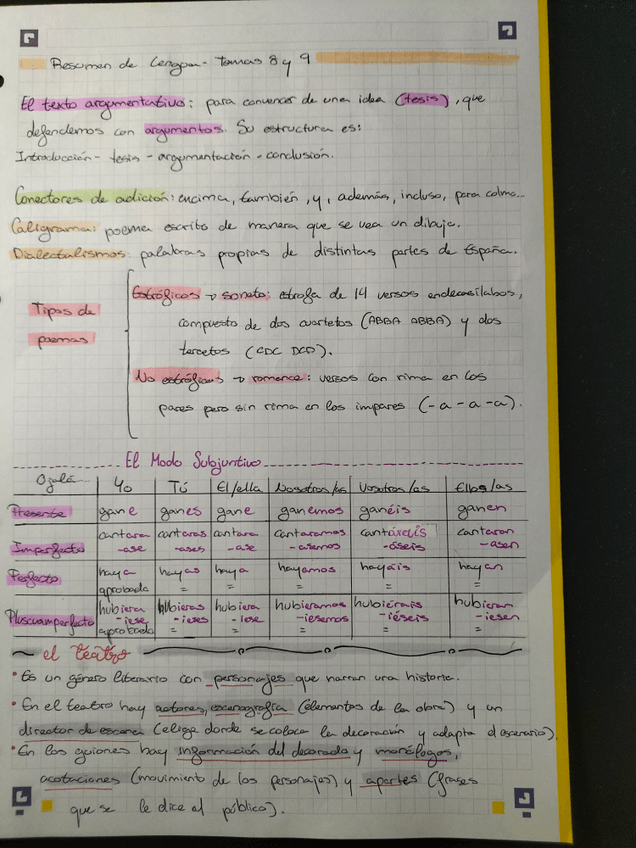 Resumen de Lengua - temas 8 y 9
El texto argumentativo: para convencer de una idea (tesis), que
defendemos con argumentos. Su estructura es:
Introducción - tesis - argumentación - conclusión.
Conectores de adición: encima, también, y, además, incluso, para colmo...
Caligrama: poema escrito de manera que se vea un dibujo.
Dialectalismos: palabras propias de distintas partes de España.
Tipos de
poemas
Estróficos → soneto: estrofa de 14 versos endecasílabos,
compuesto de dos cuartetos (ABBA ABBA) y dos
tercetos (CDC DCD).
No estróficos → romance: versos con rima en los
pares pero sin rima en los impares (-a-a-a).
El Modo Subjuntivo
Ojalá Yo Tú El/ella Nosotros/as Vosotros/as Ellos/as
Presente gane ganes gane ganemos ganéis ganen
Imperfecto cantara cantaras cantara cantaramos cantárais cantaran
-ase -ases -ase -asemos -áseis -asen
Perfecto haya hayas haya hayamos hayáis hayan
aprobado = = = = =
Pluscuamperfecto hubiera hubieras hubiera hubieramos hubiérais hubieran
-iese -ieses -iese -iesemos -iéseis -iesen
aprobado = = = = =
el teatro
• Es un género literario con personajes que narran una historia.
• En el teatro hay actores, escenografía (elementos de la obra) y un
director de escena (elige donde se coloca la decoración y adapta el escenario).
• En los guiones hay información del decorado y monólogos,
acotaciones (movimiento de los personajes) y apartes (frases
que se le dice al público).